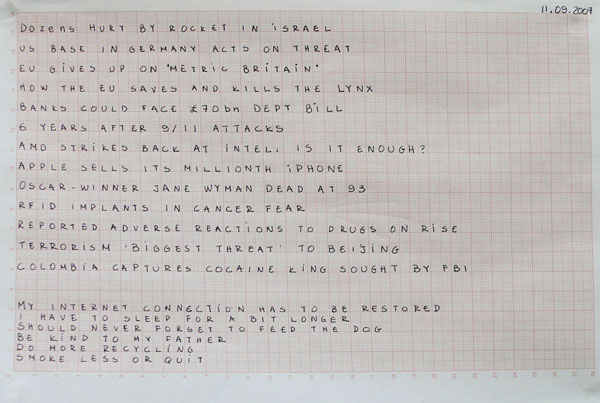 11.09.2007
DOZENS HURT BY ROCKET IN ISRAEL
US BASE IN GERMANY ACTS ON THREAT
EU GIVES UP ON 'METRIC BRITAIN'
HOW THE EU SAVES AND KILLS THE LYNX
BANKS COULD FACE £70bn DEPT BILL
6 YEARS AFTER 9/11 ATTACKS
AMD STRIKES BACK AT INTEL: IS IT ENOUGH?
APPLE SELLS ITS MILLIONTH iPHONE
OSCAR-WINNER JANE WYMAN DEAD AT 93
RFID IMPLANTS IN CANCER FEAR
REPORTED ADVERSE REACTIONS TO DRUGS ON RISE
TERRORISM 'BIGGEST THREAT' TO BEIJING
COLOMBIA CAPTURES COCAINE KING SOUGHT BY FBI
MY INTERNET CONNECTION HAS TO BE RESTORED
I HAVE TO SLEEP FOR A BIT LONGER
SHOULD NEVER FORGET TO FEED THE DOG
BE KIND TO MY FATHER
DO MORE RECYCLING
SMOKE LESS OR QUIT